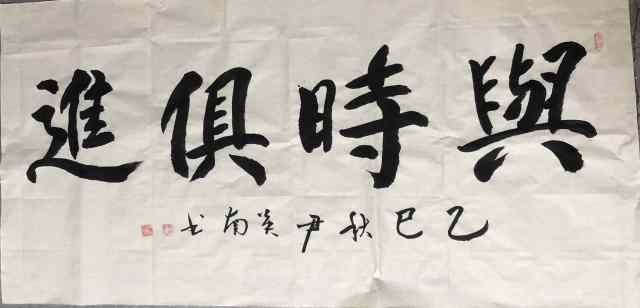 與時俱進
乙巳秋尹炎南书